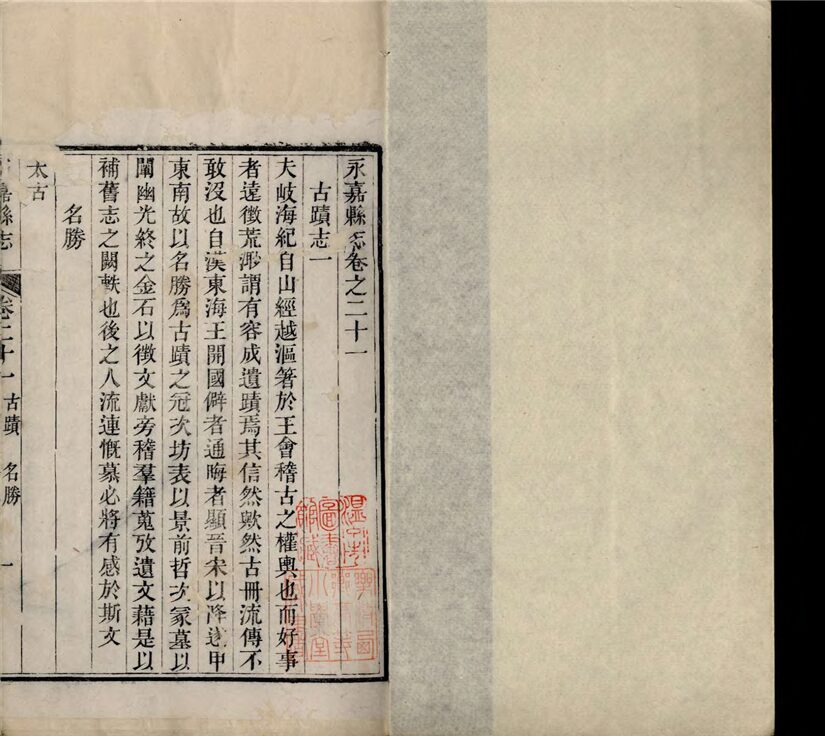 永嘉縣志卷之二十一
古蹟志一
夫岐海紀自山經越漚箸於王會稽古之權輿也而好事
者遠徵荒渺謂有容成遺蹟焉其信然歟然古冊流傳不
敢沒也自漢東海王開國僻者通晦者顯晉宋以降遂甲
東南故以名勝爲古蹟之冠次坊表以景前哲次冢墓以
闡幽光終之金石以徵文獻旁稽羣籍蒐攷遺文藉是以
補舊志之闕軼也後之人流連慨慕必將有感於斯文
名勝
太古
嘉縣志
卷二十一 古蹟 名勝
一